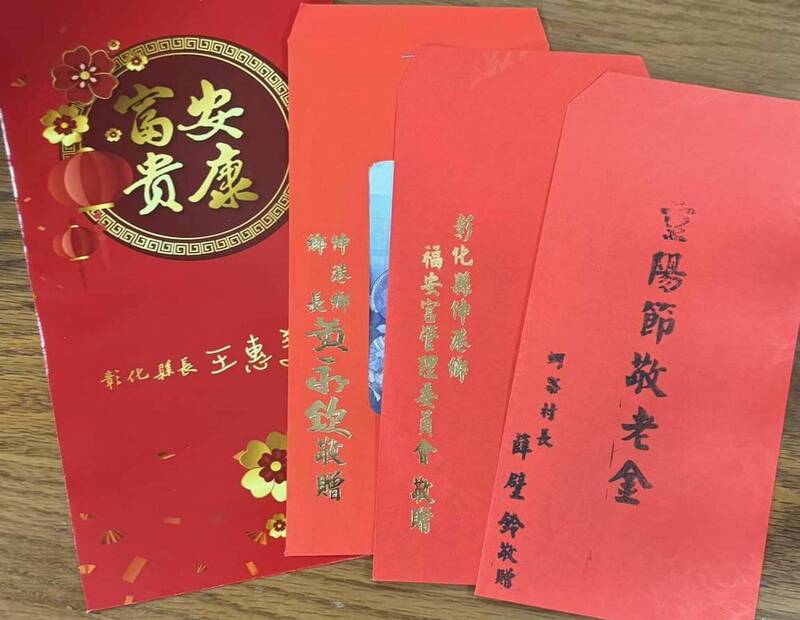 安康
富貴
彰化縣長 王惠美
伸港鄉
鄉長 黃永欽敬贈
彰化縣伸港鄉
福安宮管理委員會 敬贈
重陽節敬老金
蚵寮村長 薛壁鈴敬贈